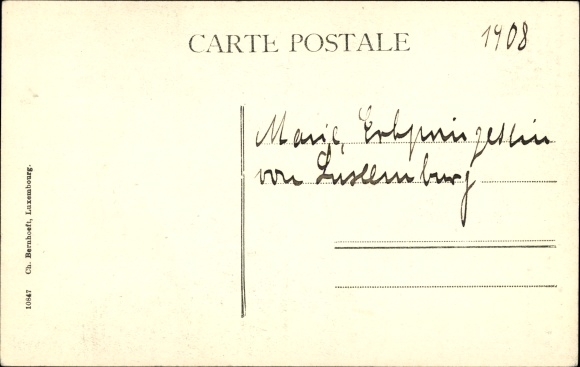 CARTE POSTALE
1908
Marie, Erbprinzessin
von Luxemburg
10847 Ch. Bernhoeft, Luxembourg.